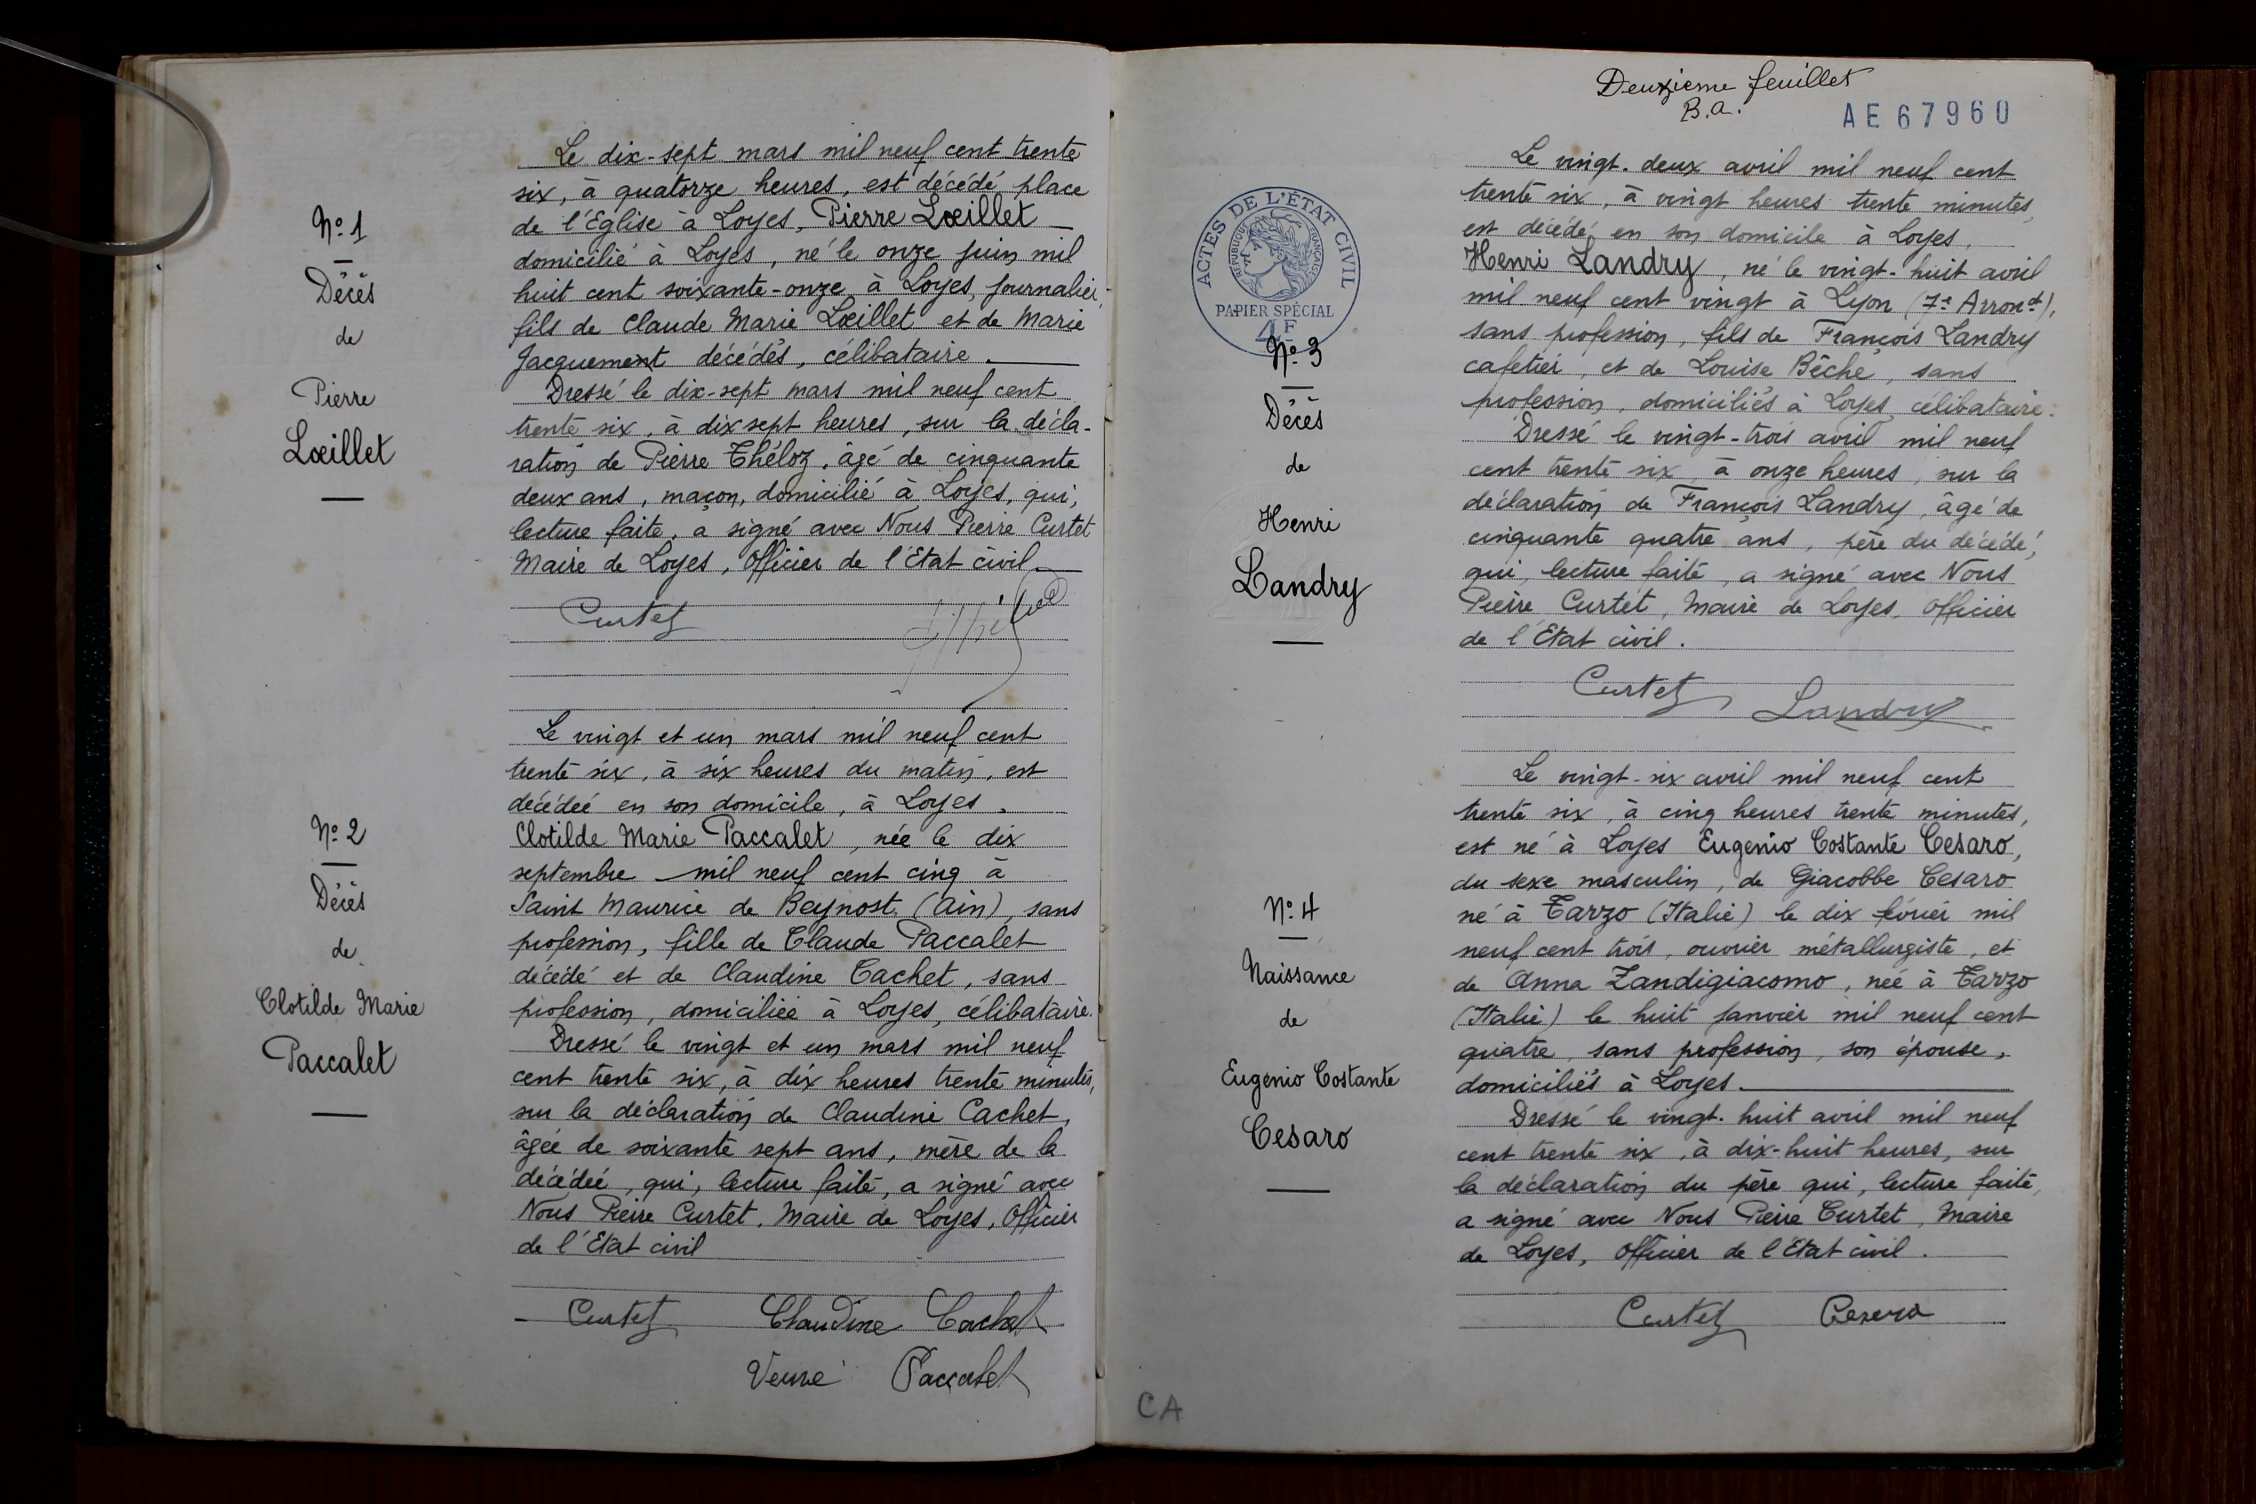 Nº 1
Décès
de
Pierre
Lœillet
Le dix-sept mars mil neuf cent trente
six, à quatorze heures, est décédé place
de l'Eglise à Loyes, Pierre Lœillet
domicilié à Loyes, né le onze juin mil
huit cent soixante-onze à Loyes, journalier,
fils de Claude Marie Lœillet et de Marie
Jacquement décédés, célibataire.
Dressé le dix-sept mars mil neuf cent
trente six, à dix sept heures, sur la décla-
ration de Pierre Théloz, âgé de cinquante
deux ans, maçon, domicilié à Loyes, qui,
lecture faite, a signé avec Nous Pierre Curtet
Maire de Loyes, Officier de l'Etat civil.
Curtet
Nº 2
Décès
de
Clotilde Marie
Paccalet
Le vingt et un mars mil neuf cent
trente six, à six heures du matin, est
décédée en son domicile, à Loyes,
Clotilde Marie Paccalet, née le dix
septembre mil neuf cent cinq à
Saint Maurice de Beynost (Ain), sans
profession, fille de Claude Paccalet
décédé et de Claudine Cachet, sans
profession, domiciliée à Loyes, célibataire.
Dressé le vingt et un mars mil neuf
cent trente six, à dix heures trente minutes,
sur la déclaration de Claudine Cachet,
âgée de soixante sept ans, mère de la
décédée, qui, lecture faite, a signé avec
Nous Pierre Curtet, Maire de Loyes, Officier
de l'Etat civil
Curtet Claudine Cachet
Veuve Paccalet
Deuxième feuillet
B.a.
AE 67960
ACTES DE L'ÉTAT CIVIL
RÉPUBLIQUE FRANÇAISE
PAPIER SPÉCIAL
4F
Nº 3
Décès
de
Henri
Landry
Le vingt-deux avril mil neuf cent
trente six, à vingt heures trente minutes,
est décédé en son domicile à Loyes,
Henri Landry, né le vingt-huit avril
mil neuf cent vingt à Lyon (7e Arront),
sans profession, fils de François Landry
cafetier, et de Louise Bêche, sans
profession, domiciliés à Loyes, célibataire.
Dressé le vingt-trois avril mil neuf
cent trente six à onze heures, sur la
déclaration de François Landry, âgé de
cinquante quatre ans, père du décédé,
qui, lecture faite, a signé avec Nous
Pierre Curtet, Maire de Loyes, Officier
de l'Etat civil.
Curtet Landry
Nº 4
Naissance
de
Eugenio Costante
Cesaro
Le vingt-six avril mil neuf cent
trente six, à cinq heures trente minutes,
est né à Loyes Eugenio Costante Cesaro,
du sexe masculin, de Giacobbe Cesaro
né à Tarzo (Italie) le dix février mil
neuf cent trois, ouvrier métallurgiste, et
de Anna Zandigiacomo, née à Tarzo
(Italie) le huit janvier mil neuf cent
quatre, sans profession, son épouse,
domiciliés à Loyes.
Dressé le vingt-huit avril mil neuf
cent trente six, à dix-huit heures, sur
la déclaration du père qui, lecture faite,
a signé avec Nous Pierre Curtet, Maire
de Loyes, Officier de l'Etat civil.
Curtet Cesaro
CA